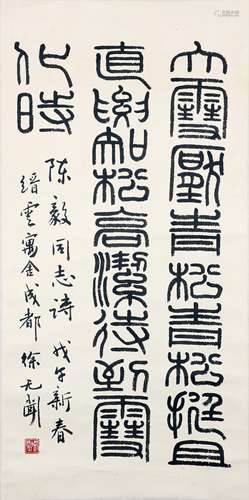 大雪壓青松青松挺且
直要知松高潔待到雪
化時
陳毅同志詩 戊午新春
縉雲寓舍成都 徐无聞